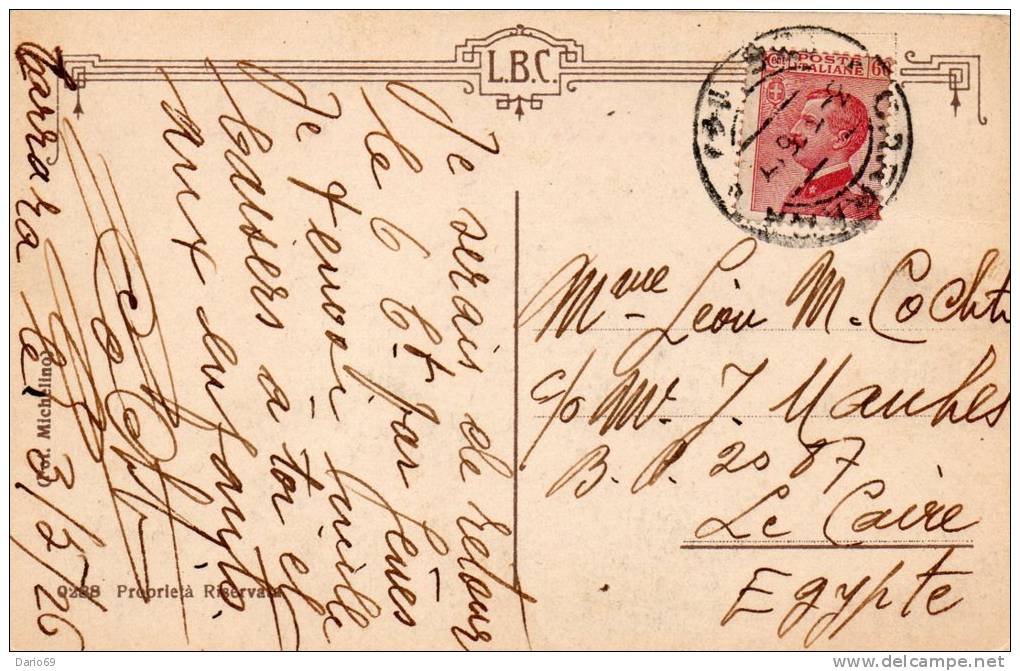 L.B.C.
POSTE
ITALIANE 60
Carrara le 3/5/26
Je serais de retour
le 6 ct par Gênes
Je t'envoi mille
baisers a toi et
aux enfants.
Mme Léon M. Cochti
c/o Mr J. Maubes
B. P. 2087
Le Caire
Egypte
(Fot. Michelino)
0288 Proprietà Riservata
Dario69
delcampe.net